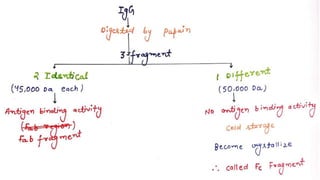 IgG
Digested by papain
3-fragment
2 Identical
(45,000 Da each)
Antigen binding activity
(Fab region)
Fab fragment
1 Different
(50,000 Da)
No antigen binding activity
Cold storage
Become crystallize
∴ called Fc Fragment